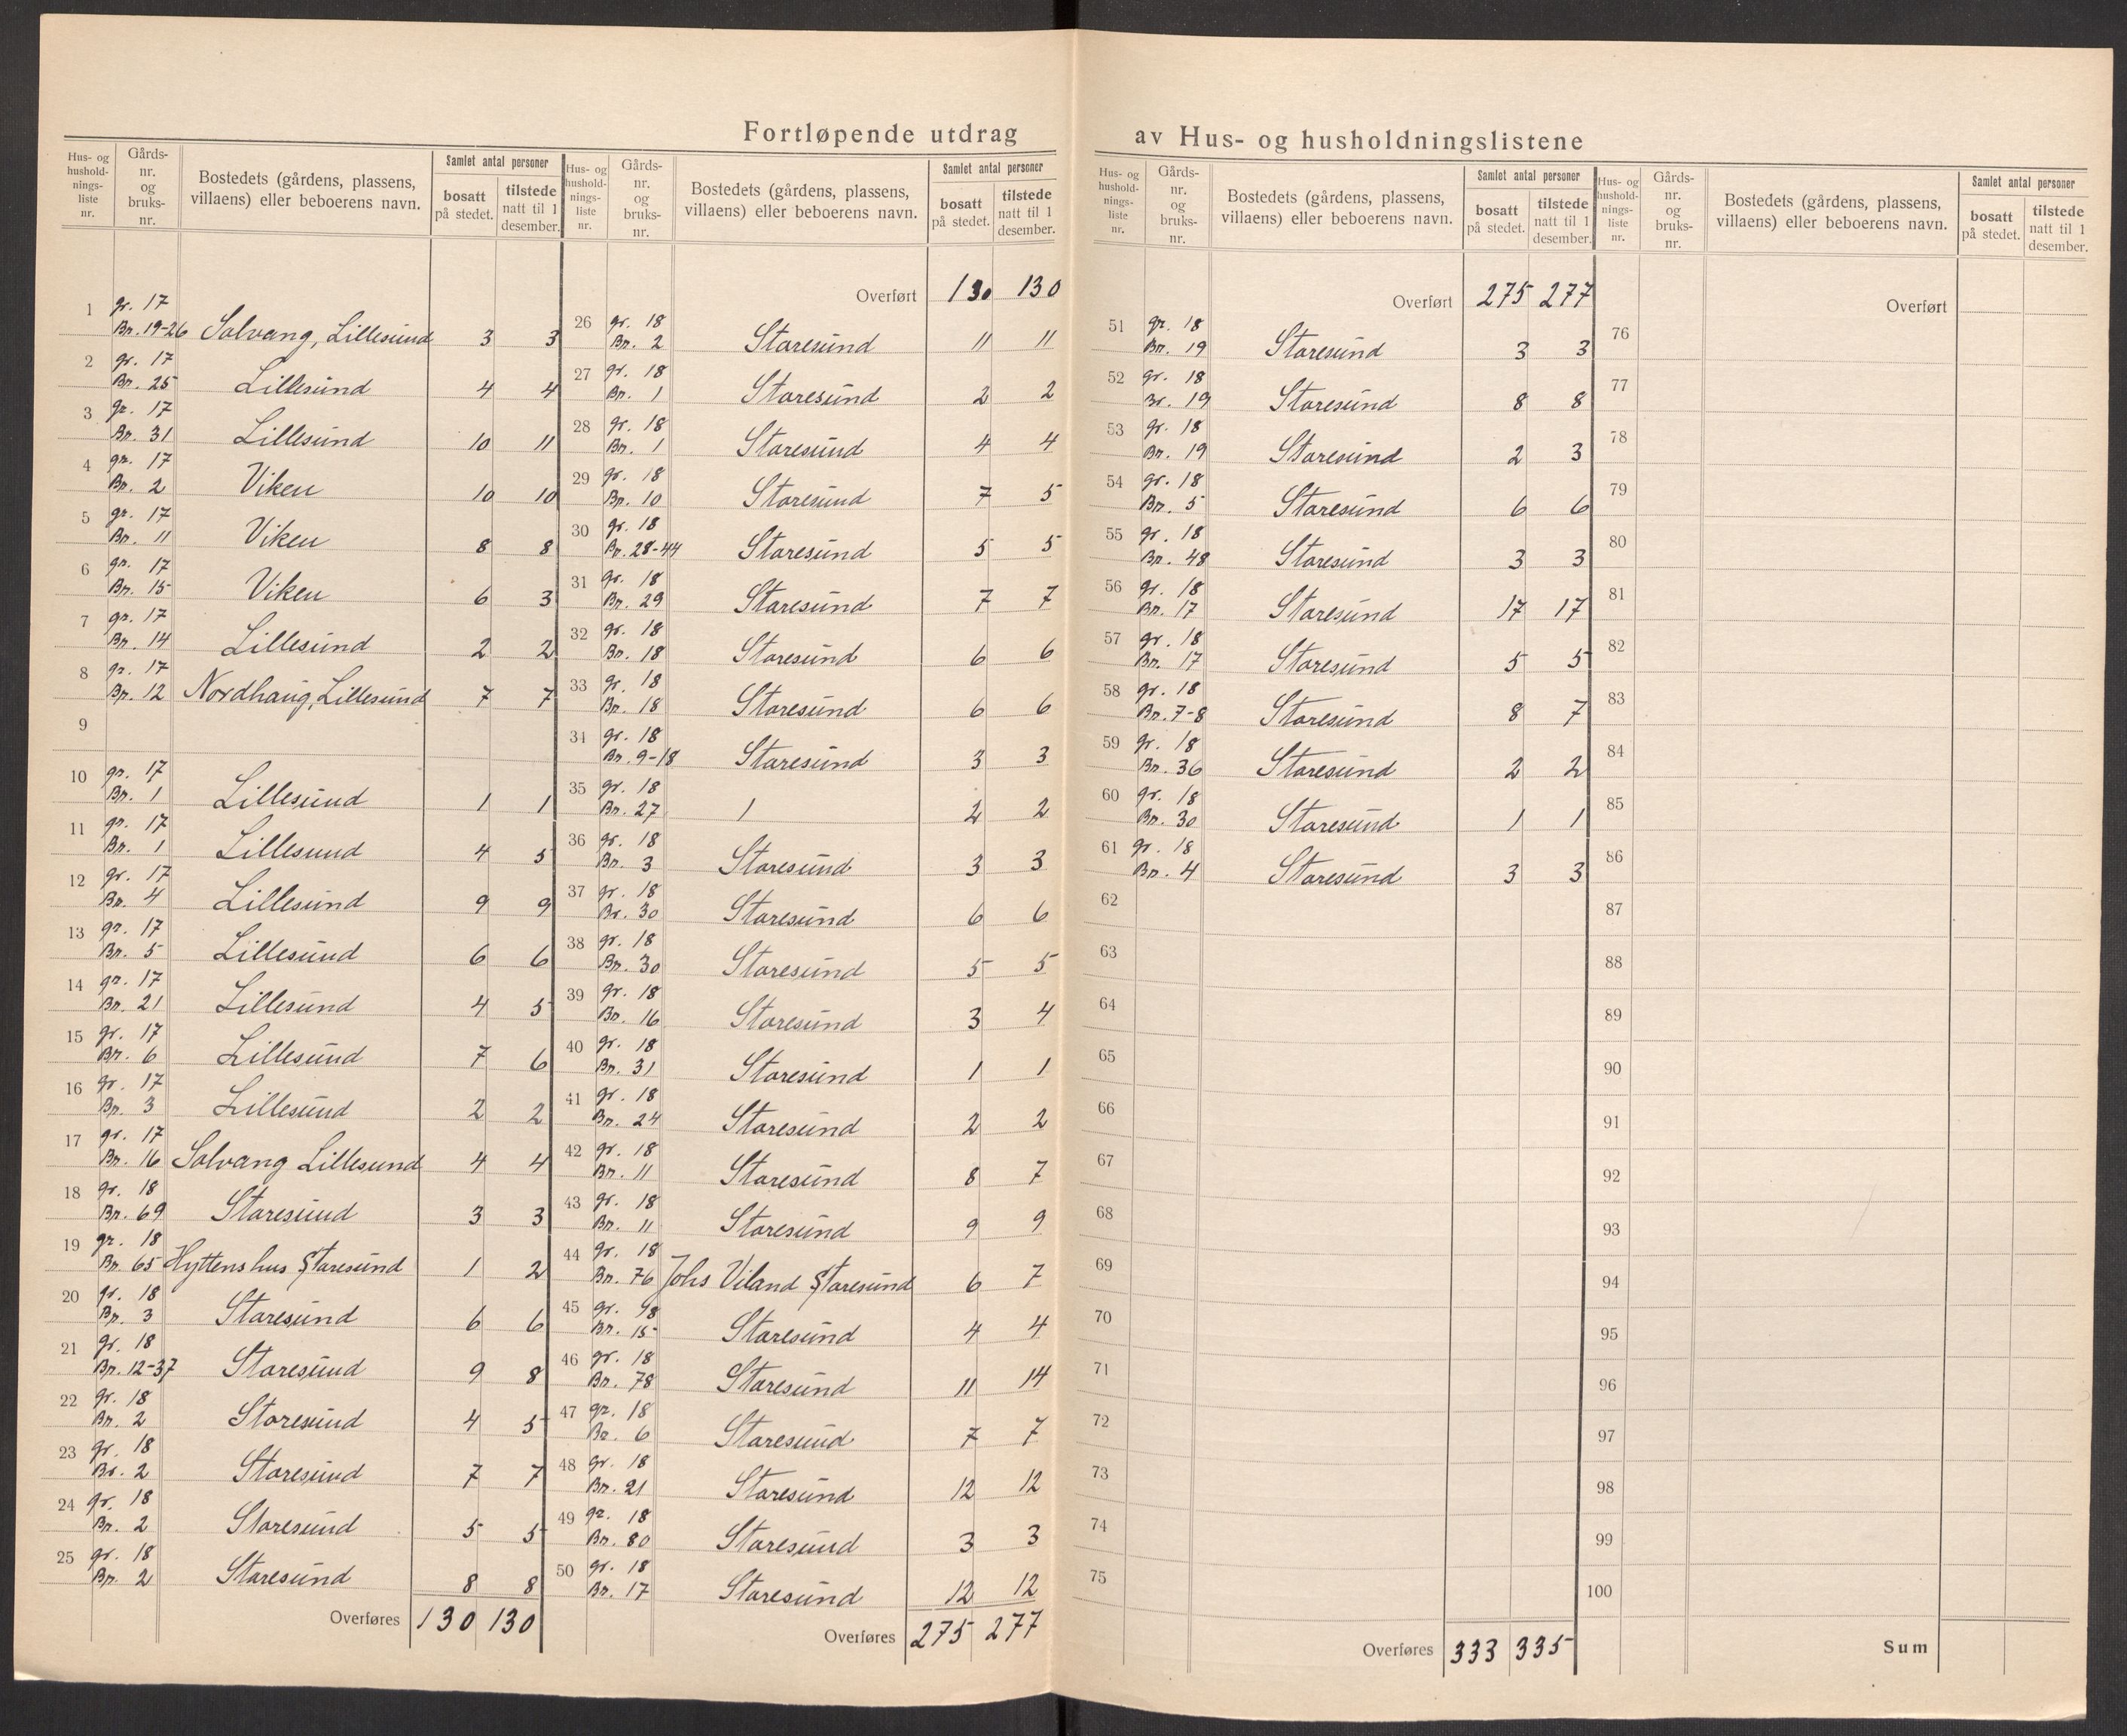 Fortløpende utdrag av Hus- og husholdningslistene
Hus- og husholdningsliste nr. | Gårds-nr. og bruks-nr. | Bostedets (gårdens, plassens, villaens) eller beboerens navn. | Samlet antal personer bosatt på stedet. | tilstede natt til 1 desember.
1 gr. 17 Bn. 19-26 Solvang, Lillesund 3 3
2 gr. 17 Bn. 25 Lillesund 4 4
3 gr. 17 Bn. 31 Lillesund 10 11
4 gn. 17 Bn. 2 Viken 10 10
5 gn. 17 Bn. 11 Viken 8 8
6 gn. 17 Bn. 15 Viken 6 3
7 gn. 17 Bn. 14 Lillesund 2 2
8 gr. 17 Bn. 12 Nordhaug, Lillesund 7 7
9
10 gn. 17 Bn. 1 Lillesund 1 1
11 gn. 17 Bn. 1 Lillesund 4 5
12 gr. 17 Bn. 4 Lillesund 9 9
13 gr. 17 Bn. 5 Lillesund 6 6
14 gr. 17 Bn. 21 Lillesund 4 5
15 gr. 17 Bn. 6 Lillesund 7 6
16 gr. 17 Bn. 3 Lillesund 2 2
17 gr. 17 Bn. 16 Solvang Lillesund 4 4
18 gr. 18 Bn. 69 Staresund 3 3
19 gr. 18 Bn. 65 Hyttenshus Staresund 1 2
20 gr. 18 Bn. 3 Staresund 6 6
21 gr. 18 Bn. 12-37 Staresund 9 8
22 gr. 18 Bn. 2 Staresund 4 5
23 gr. 18 Bn. 2 Staresund 7 7
24 gr. 18 Bn. 2 Staresund 5 5
25 gr. 18 Bn. 2 Staresund 8 8
Overføres 130 130
Hus- og husholdningsliste nr. | Gårds-nr. og bruks-nr. | Bostedets (gårdens, plassens, villaens) eller beboerens navn. | Samlet antal personer bosatt på stedet. | tilstede natt til 1 desember.
Overført 130 130
26 gr. 18 Bn. 2 Staresund 11 11
27 gr. 18 Bn. 1 Staresund 2 2
28 gr. 18 Bn. 1 Staresund 4 4
29 gr. 18 Bn. 10 Staresund 7 5
30 gr. 18 Bn. 28-44 Staresund 5 5
31 gr. 18 Bn. 29 Staresund 7 7
32 gr. 18 Bn. 18 Staresund 6 6
33 gr. 18 Bn. 18 Staresund 6 6
34 gr. 18 Bn. 9-18 Staresund 3 3
35 gr. 18 Bn. 27 1 2 2
36 gr. 18 Bn. 3 Staresund 3 3
37 gr. 18 Bn. 30 Staresund 6 6
38 gr. 18 Bn. 30 Staresund 5 5
39 gr. 18 Bn. 16 Staresund 3 4
40 gr. 18 Bn. 31 Staresund 1 1
41 gr. 18 Bn. 24 Staresund 2 2
42 gr. 18 Bn. 11 Staresund 8 7
43 gr. 18 Bn. 11 Staresund 9 9
44 gr. 18 Bn. 76 Johs Viland Staresund 6 7
45 gr. 18 Bn. 15 Staresund 4 4
46 gr. 18 Bn. 78 Staresund 11 14
47 gr. 18 Bn. 6 Staresund 7 7
48 gr. 18 Bn. 21 Staresund 12 12
49 gr. 18 Bn. 80 Staresund 3 3
50 gr. 18 Bn. 17 Staresund 12 12
Overføres 275 277
Hus- og husholdningsliste nr. | Gårds-nr. og bruks-nr. | Bostedets (gårdens, plassens, villaens) eller beboerens navn. | Samlet antal personer bosatt på stedet. | tilstede natt til 1 desember.
Overført 275 277
51 gr. 18 Bn. 19 Staresund 3 3
52 gr. 18 Bn. 19 Staresund 8 8
53 gr. 18 Bn. 19 Staresund 2 3
54 gr. 18 Bn. 5 Staresund 6 6
55 gr. 18 Bn. 48 Staresund 3 3
56 gr. 18 Bn. 17 Staresund 17 17
57 gr. 18 Bn. 17 Staresund 5 5
58 gr. 18 Bn. 7-8 Staresund 8 7
59 gr. 18 Bn. 36 Staresund 2 2
60 gr. 18 Bn. 30 Staresund 1 1
61 gr. 18 Bn. 4 Staresund 3 3
62
63
64
65
66
67
68
69
70
71
72
73
74
75
Overføres 333 335
Hus- og husholdningsliste nr. | Gårds-nr. og bruks-nr. | Bostedets (gårdens, plassens, villaens) eller beboerens navn. | Samlet antal personer bosatt på stedet. | tilstede natt til 1 desember.
Overført
76
77
78
79
80
81
82
83
84
85
86
87
88
89
90
91
92
93
94
95
96
97
98
99
100
Sum